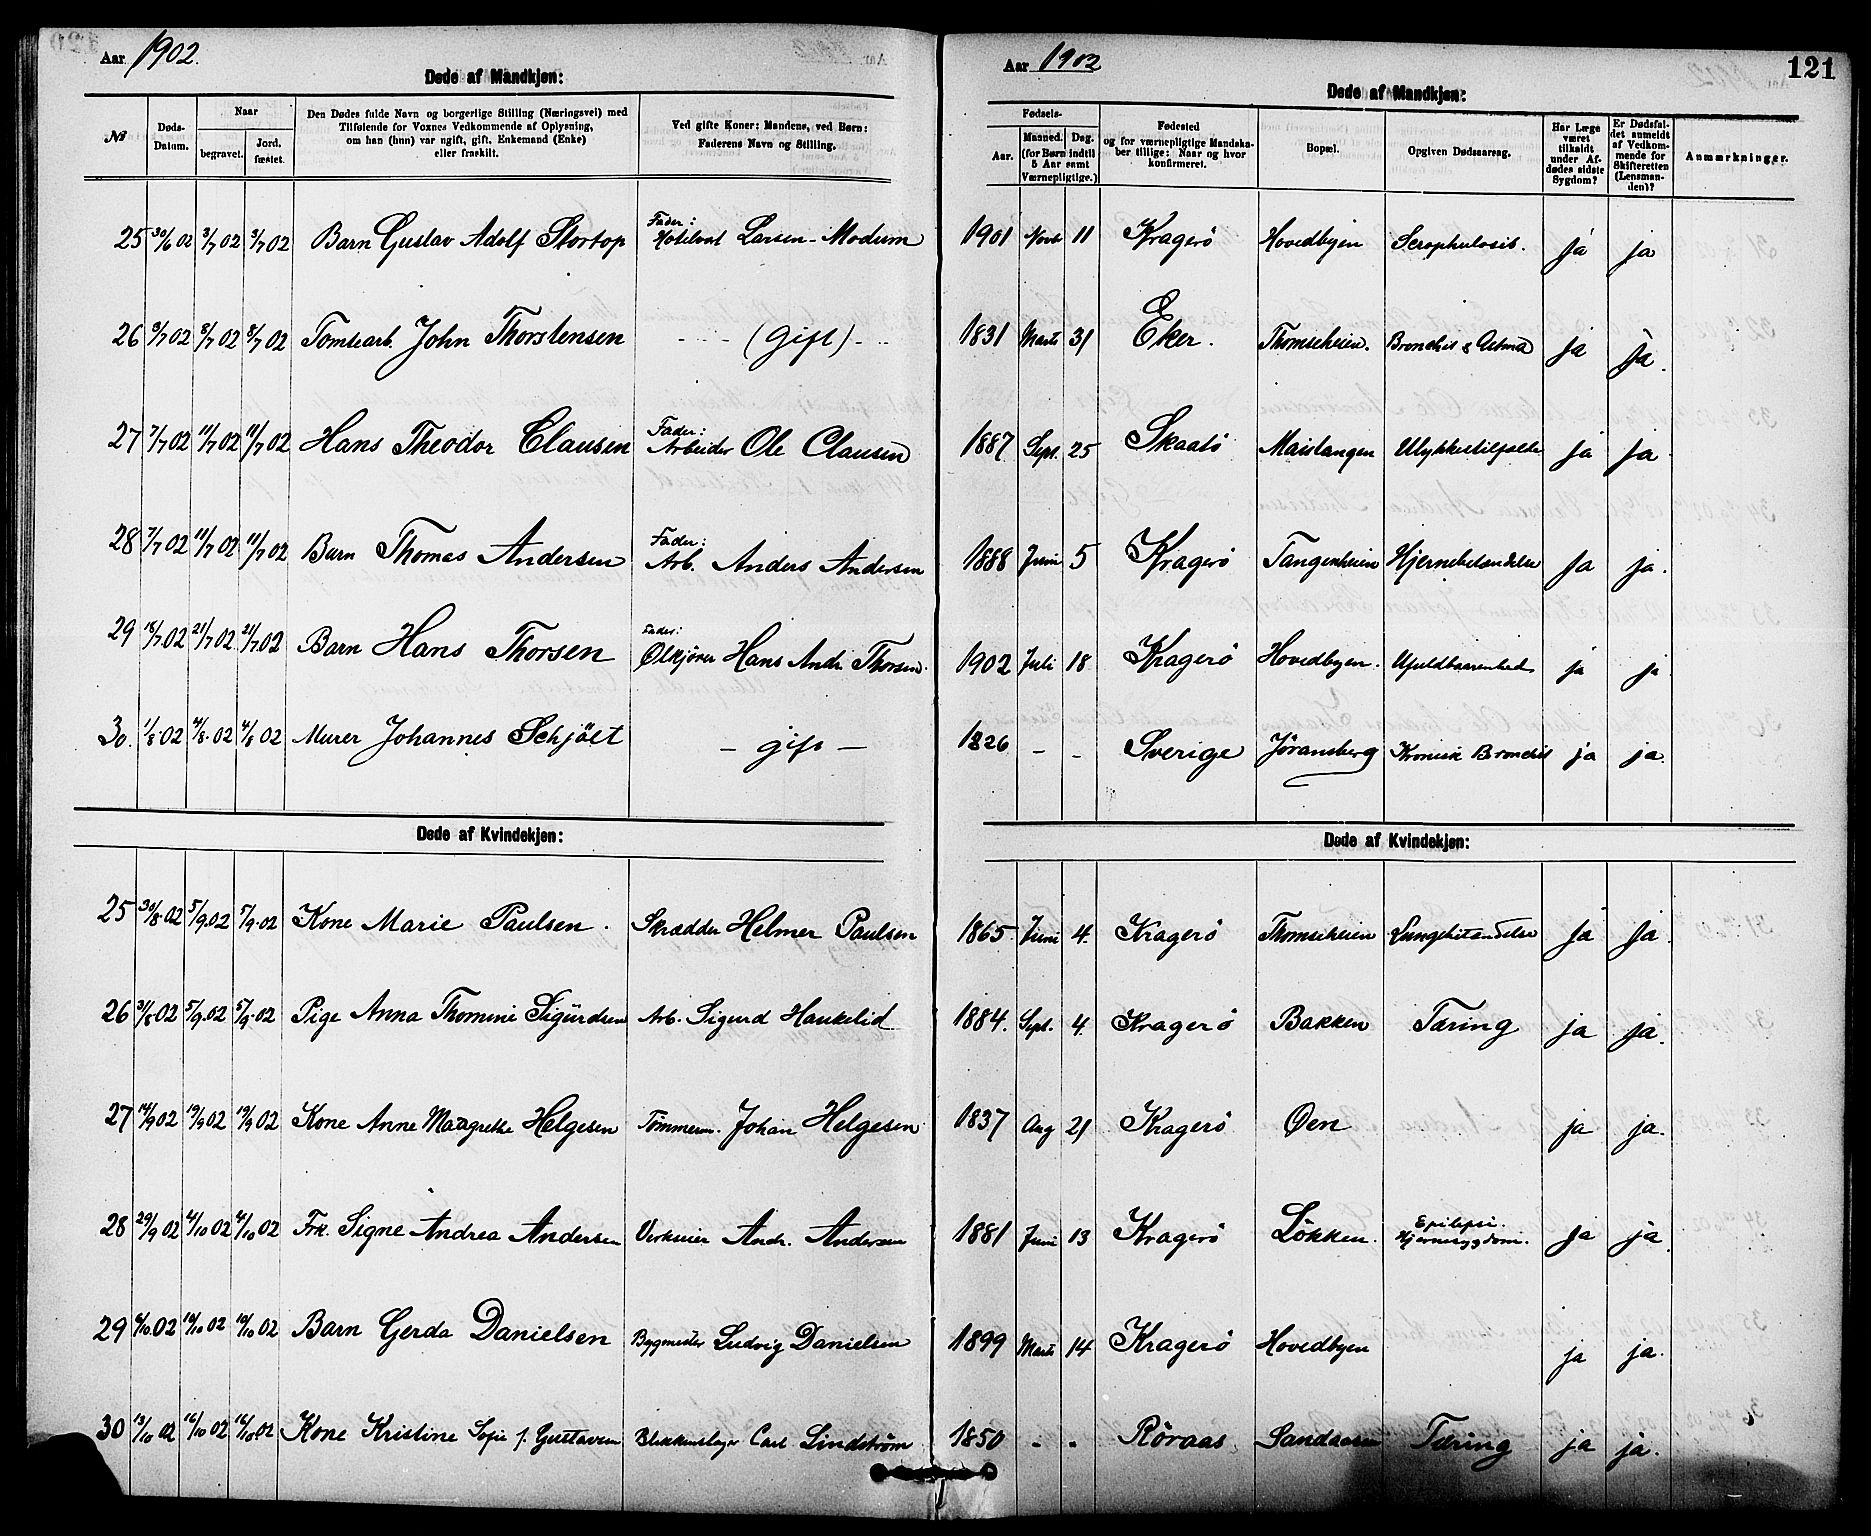 Aar 1902.
Døde af Mandkjøn:
№
Døds-Datum.
Naar
begravet.
Jord-fæstet.
Den Dødes fulde Navn og borgerlige Stilling (Næringsvei) med
Tilføiende for Voxnes Vedkommende af Oplysning,
om han (hun) var ugift, gift, Enkemand (Enke)
eller fraskilt.
Ved gifte Koner: Mandens, ved Børn:
Faderens Navn og Stilling.
Aar 1902
121
Døde af Mandkjøn:
Fødsels-
Aar.
Maaned. Dag.
(for Børn indtil
5 Aar samt
Værnepligtige.)
Fødested
og for værnepligtige Mandska-
ber tillige: Naar og hvor
konfirmeret.
Bopæl.
Opgiven Dødsaarsag.
Har Læge
været
tilkaldt
under Af-
dødes sidste
Sygdom?
Er Dødsfal-
det anmeldt
af Vedkom-
mende for
Skifteretten
(Lensman-
den)?
Anmærkninger.
25 30/6 02 3/7 02 3/7 02 Barn Gustav Adolf Stortop Fader: Larsen-Modum 1901 Novb 11 Kragerö Hovedbyen Scrophulosis. ja ja
26 3/7 02 8/7 02 8/7 02 Tomtearb. John Thorstensen - - - (gift) - - 1831 Marts 31 Eker. Thomseheien. Bronchit & Astma ja ja.
27 7/7 02 11/7 02 11/7 02 Hans Theodor Clausen Fader: Arbeider Ole Clausen 1887 Sept. 25 Skaatö Mastangen Ulykkestilfælde ja ja
28 7/7 02 11/7 02 11/7 02 Barn Thomas Andersen Fader: Arb. Anders Andersen 1888 Juni 5 Kragerö Tangenheien Hjernebetændelse ja ja.
29 18/7 02 21/7 02 21/7 02 Barn Hans Thorsen Fader: Ølkjører Hans Andr. Thorsen. 1902 Juli 18 Kragerö Hovedbyen. Ufuldbaarenhed ja ja
30. 1/8 02 4/8 02 4/8 02 Murer Johannes Schjölt - gift - 1826 - - Sverige Jøransberg Kronisk Bronchit ja ja.
Døde af Kvindekjøn:
Døde af Kvindekjøn:
25 30/8 02 5/9 02 5/9 02 Kone Marie Paulsen. Skrædder Helmer Paulsen 1865 Juni 4. Kragerö Thomseheien Lungebetændelse ja ja.
26 31/8 02 5/9 02 5/9 02 Pige Anna Thomine Sigurdsen Arb. Sigurd Haukelid 1884. Sept. 4. Kragerö Bakken Tæring ja ja.
27 14/9 02 19/9 02 19/9 02 Kone Anne Margrethe Helgesen Tömmerm. Johan Helgesen 1837 Aug 21 Kragerö Øen ja ja.
28 29/9 02 4/10 02 4/10 02 Frk. Signe Andrea Andersen Verkseier Andr. Andersen 1881 Juni 13 Kragerö Lökken. Epilepsi. Hjernesygdom. ja ja.
29 6/10 02 10/10 02 10/10 02 Barn Gerda Danielsen Bygmester Ludvig Danielsen 1899 Marts 14 Kragerö Hovedbyen ja ja.
30 13/10 02 16/10 02 16/10 02 Kone Kristine Sofie f. Gustavsen Blikkenslager Carl Lindström 1850 - - Röraas Sandaasen Tæring ja ja.